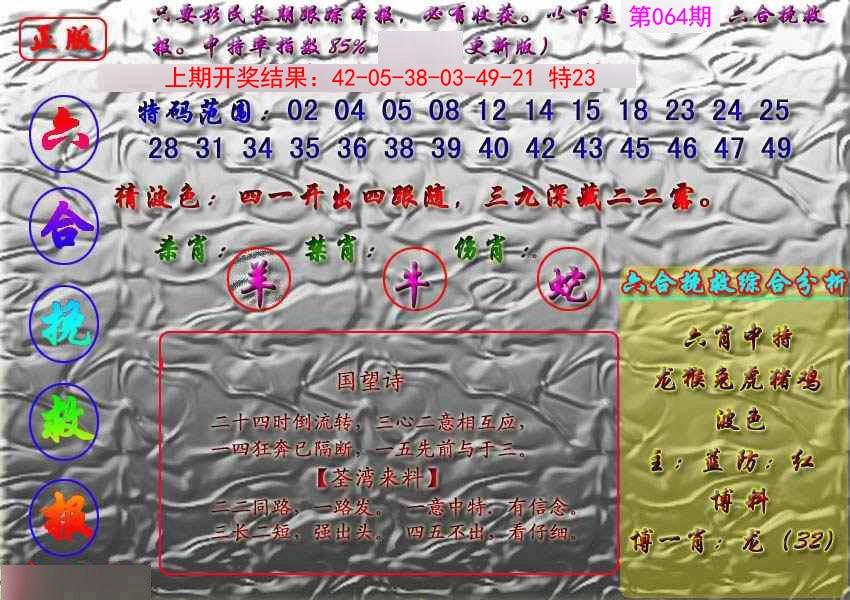 正版
只要彩民长期跟踪本报，必有收获。以下是 第064期 六合挽救
报。中特率指数85% 更新版）
上期开奖结果：42-05-38-03-49-21 特23
六合挽救报
特码范围：02 04 05 08 12 14 15 18 23 24 25
28 31 34 35 36 38 39 40 42 43 45 46 47 49
猜波色：四一开出四跟随，三九深藏二二露。
杀肖：羊 禁肖：牛 伤肖：蛇
国望诗
二十四时倒流转，三心二意相互应，
一四狂奔已隔断，一五先前与于三。
【荃湾来料】
二二同路，一路发。 一意中特，有信念。
三长二短，强出头。 四五不出，看仔细。
六合挽救综合分析
六肖中特
龙猴兔虎猪鸡
波色
主：蓝防：红
博料
博一肖：龙（32）